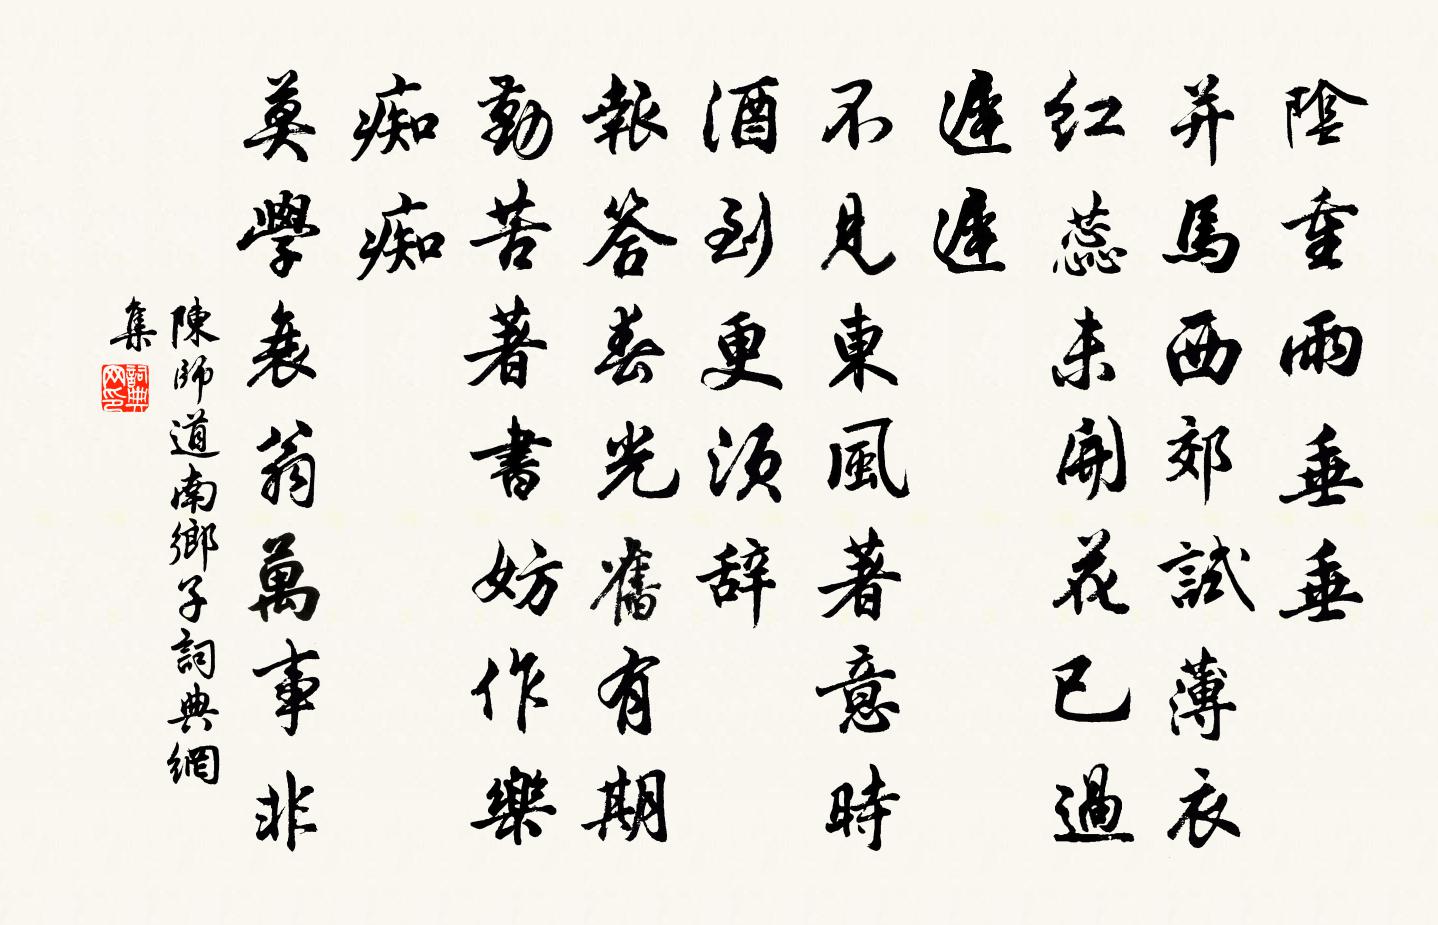 陰重雨垂垂
并馬西郊試薄衣
紅蕊未開花已過
遲遲
不見東風著意時
酒到更須辞
報答春光舊有期
勤苦著書妨作樂
痴痴
莫學衰翁萬事非
陳師道南鄉子詞典網
集
詞典網印